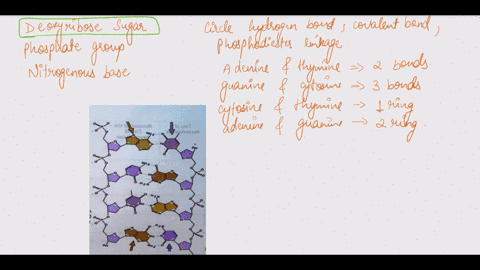 Deoxyribose Sugar
Phosphate group
Nitrogenous base
Circle hydrogen bond, covalent bond,
Phosphodiester linkage
Adenine & thymine → 2 bonds
guanine & cytosine → 3 bonds
cytosine & thymine → 1 ring
adenine & guanine → 2 ring